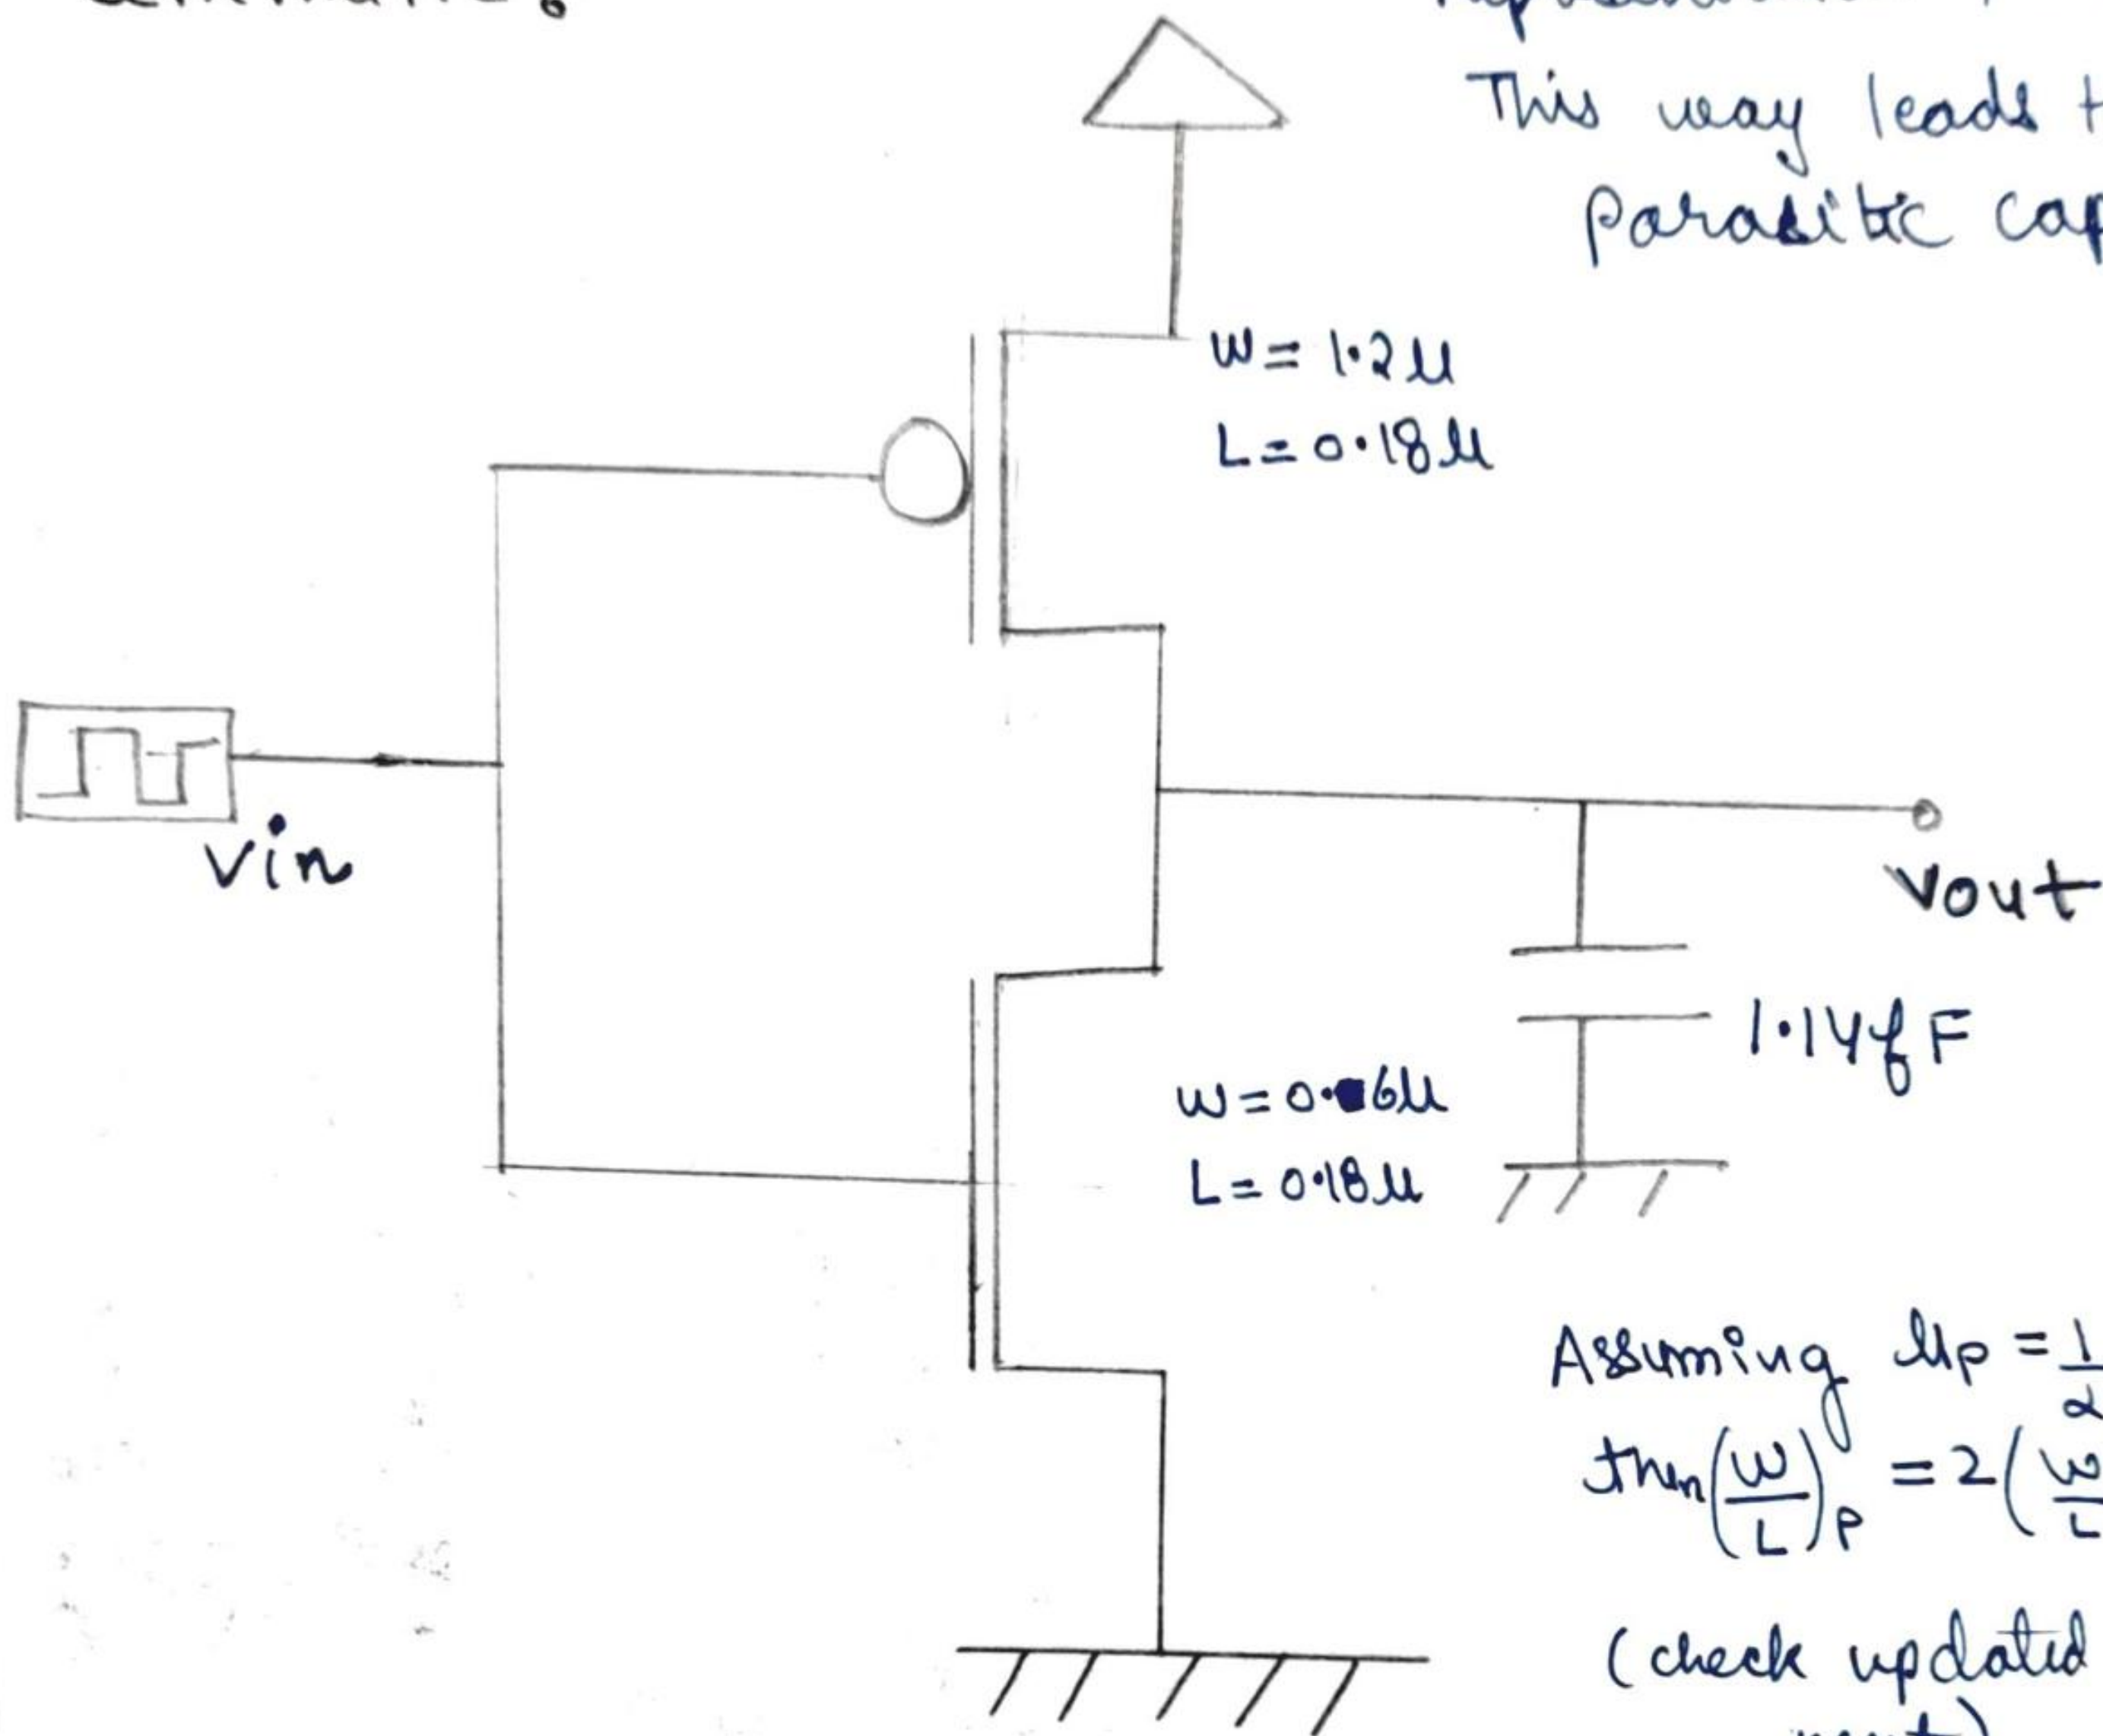 This way leads t
Parasitic cap
W = 1.2µ
L = 0.18µ
Vin
Vout
1.14fF
W = 0.6µ
L = 0.18µ
Assuming µp = 1/2
then (W/L)p = 2(W/L
(check updated